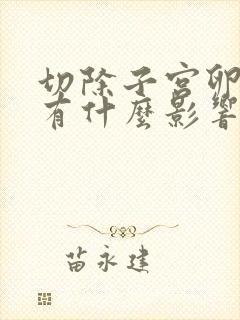 切除子宮卵
有什麼影響
苗永建